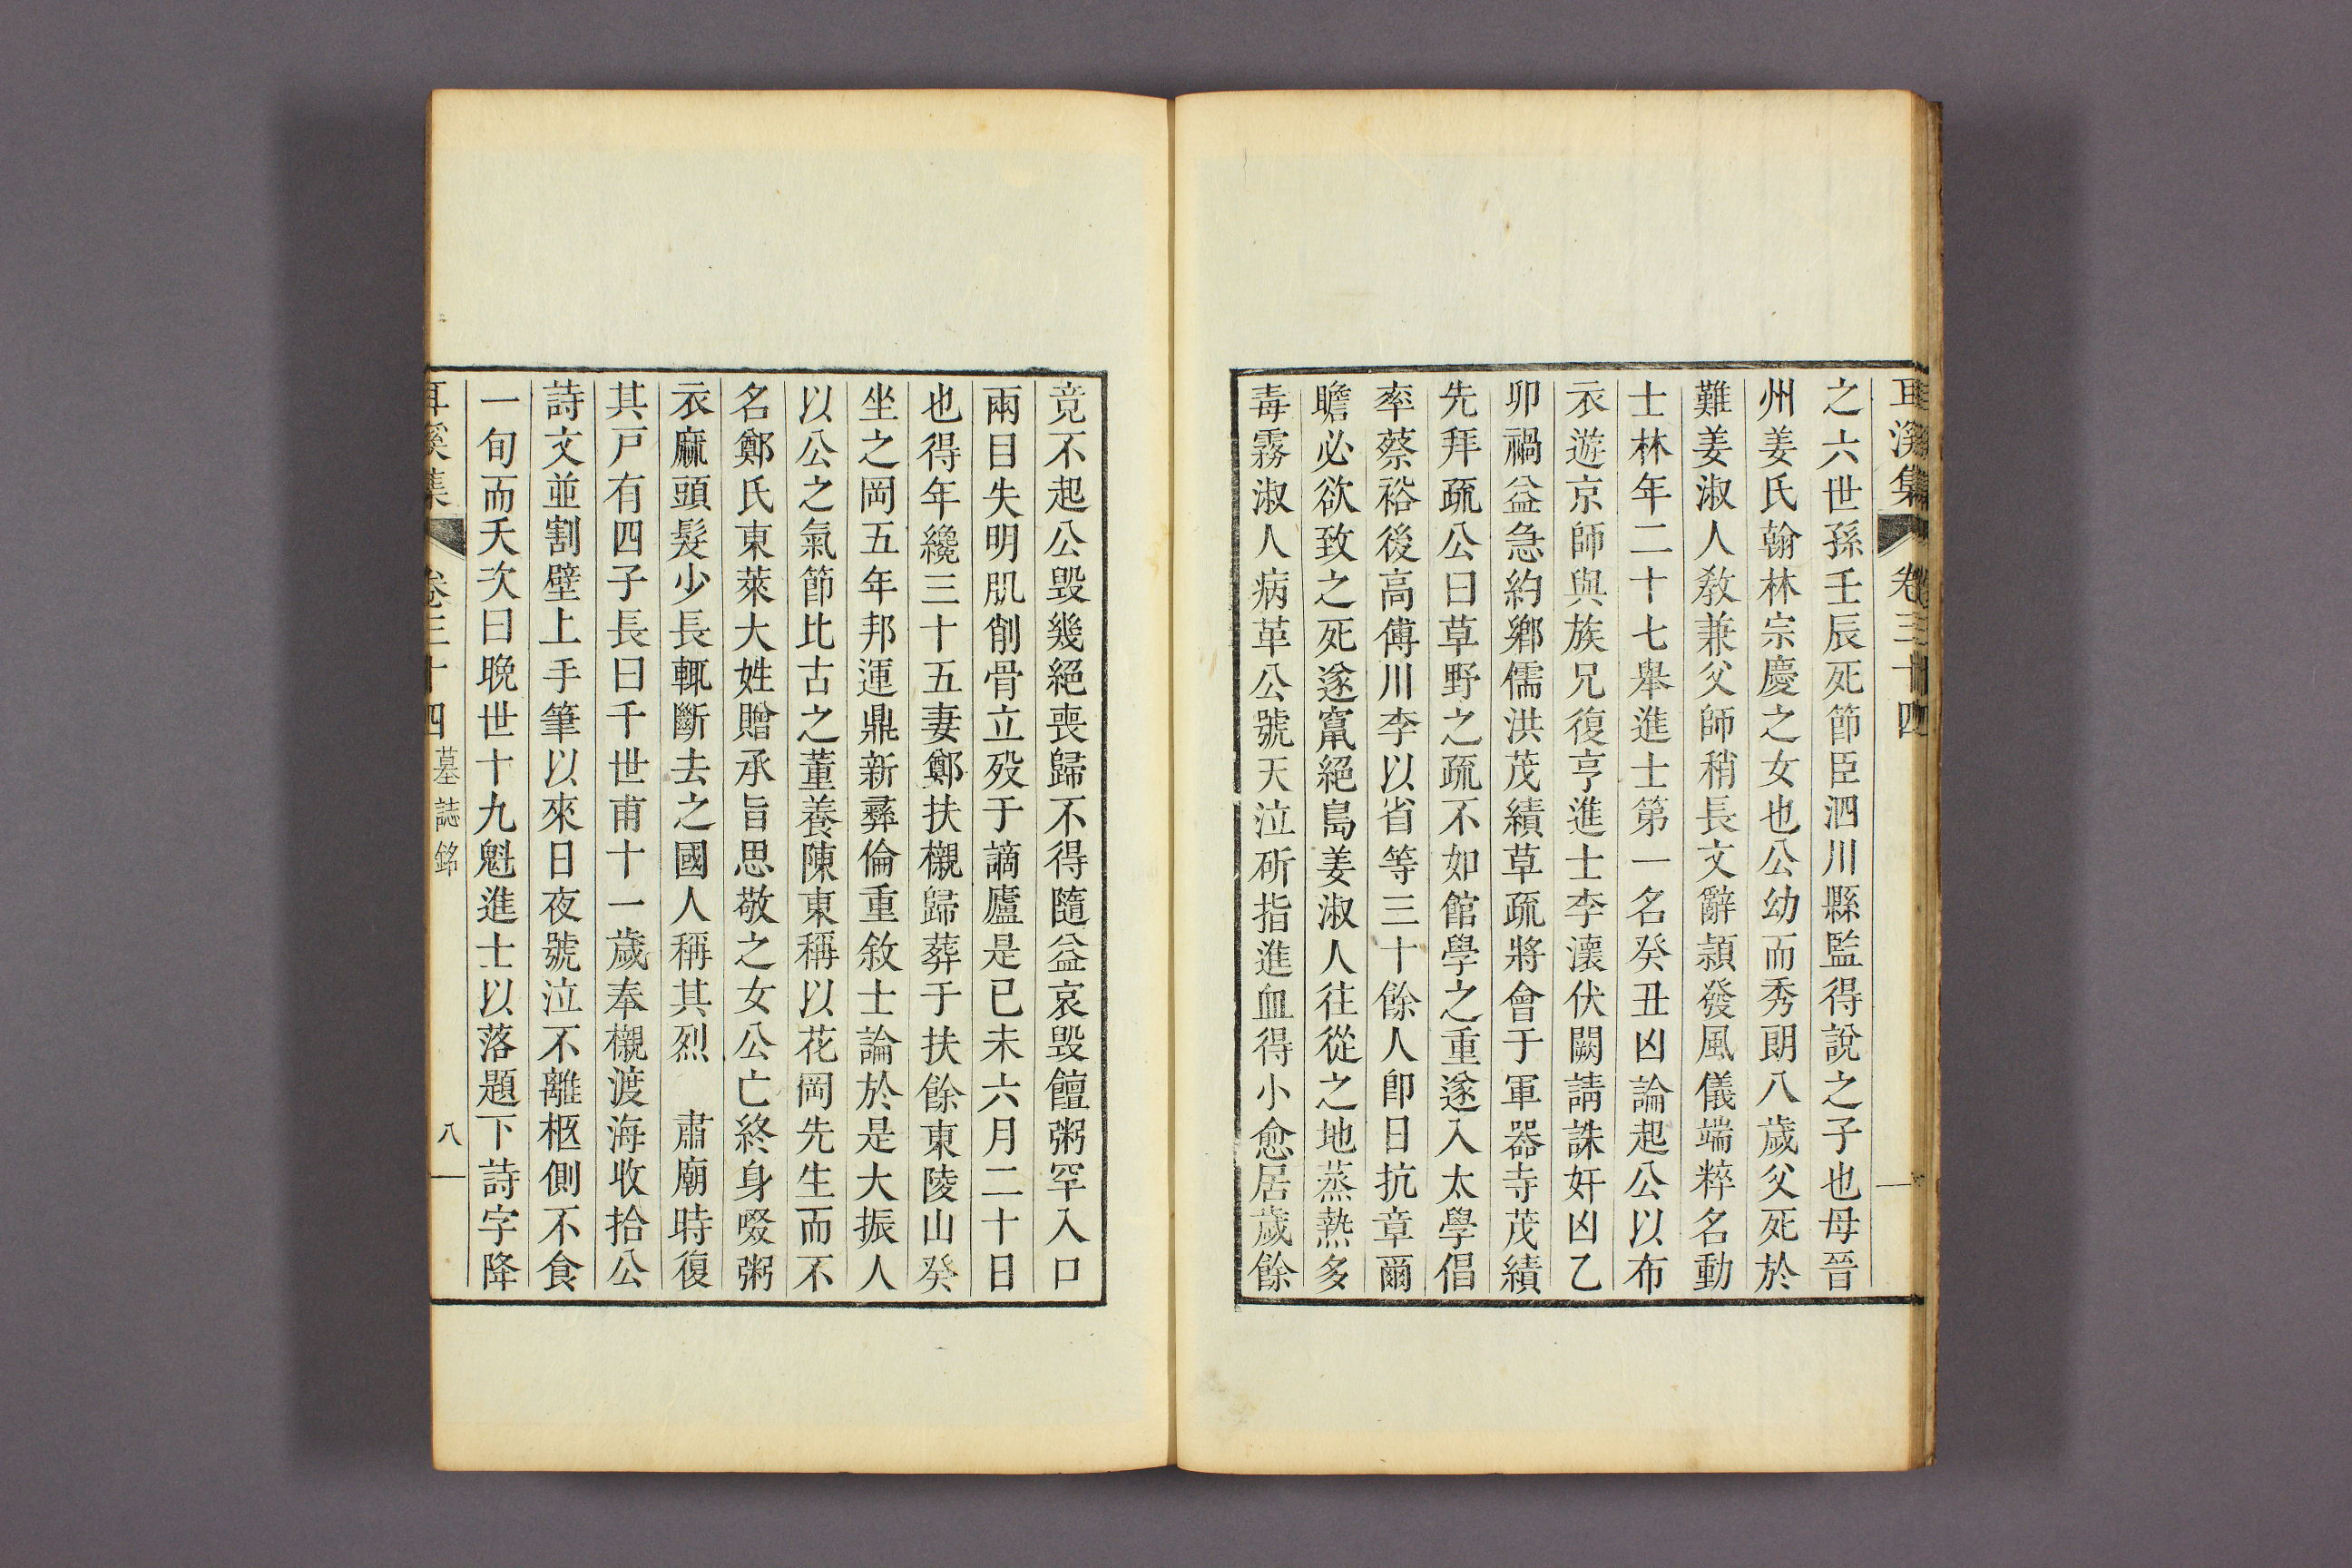 耳溪集 卷三十四
之六世孫壬辰死節臣泗川縣監得說之子也母晉
州姜氏翰林宗慶之女也公幼而秀朗八歲父死於
難姜淑人敎兼父師稍長文辭穎發風儀端粹名動
士林年二十七舉進士第一名癸丑凶論起公以布
衣遊京師與族兄復亨進士李瀤伏闕請誅奸凶乙
卯禍益急約鄕儒洪茂績草疏將會于軍器寺茂績
先拜疏公曰草野之疏不如館學之重遂入太學倡
率蔡裕後高傅川李以省等三十餘人卽日抗章爾
瞻必欲致之死遂竄絕島姜淑人往從之地蒸熱多
毒霧淑人病革公號天泣斫指進血得小愈居歲餘
竟不起公毀幾絕喪歸不得隨益哀毀饘粥罕入口
兩目失明肌削骨立歿于謫廬是己未六月二十日
也得年纔三十五妻鄭扶櫬歸葬于扶餘東陵山癸
坐之岡五年邦運鼎新彝倫重敘士論於是大振人
以公之氣節比古之董養陳東稱以花岡先生而不
名鄭氏東萊大姓贈承旨思敬之女公亡終身啜粥
衣麻頭髮少長輒斷去之國人稱其烈 肅廟時復
其戶有四子長曰千世甫十一歲奉櫬渡海收拾公
詩文並割壁上手筆以來日夜號泣不離柩側不食
一旬而夭次曰晩世十九魁進士以落題下詩字降
耳溪集 卷三十四 墓誌銘 八